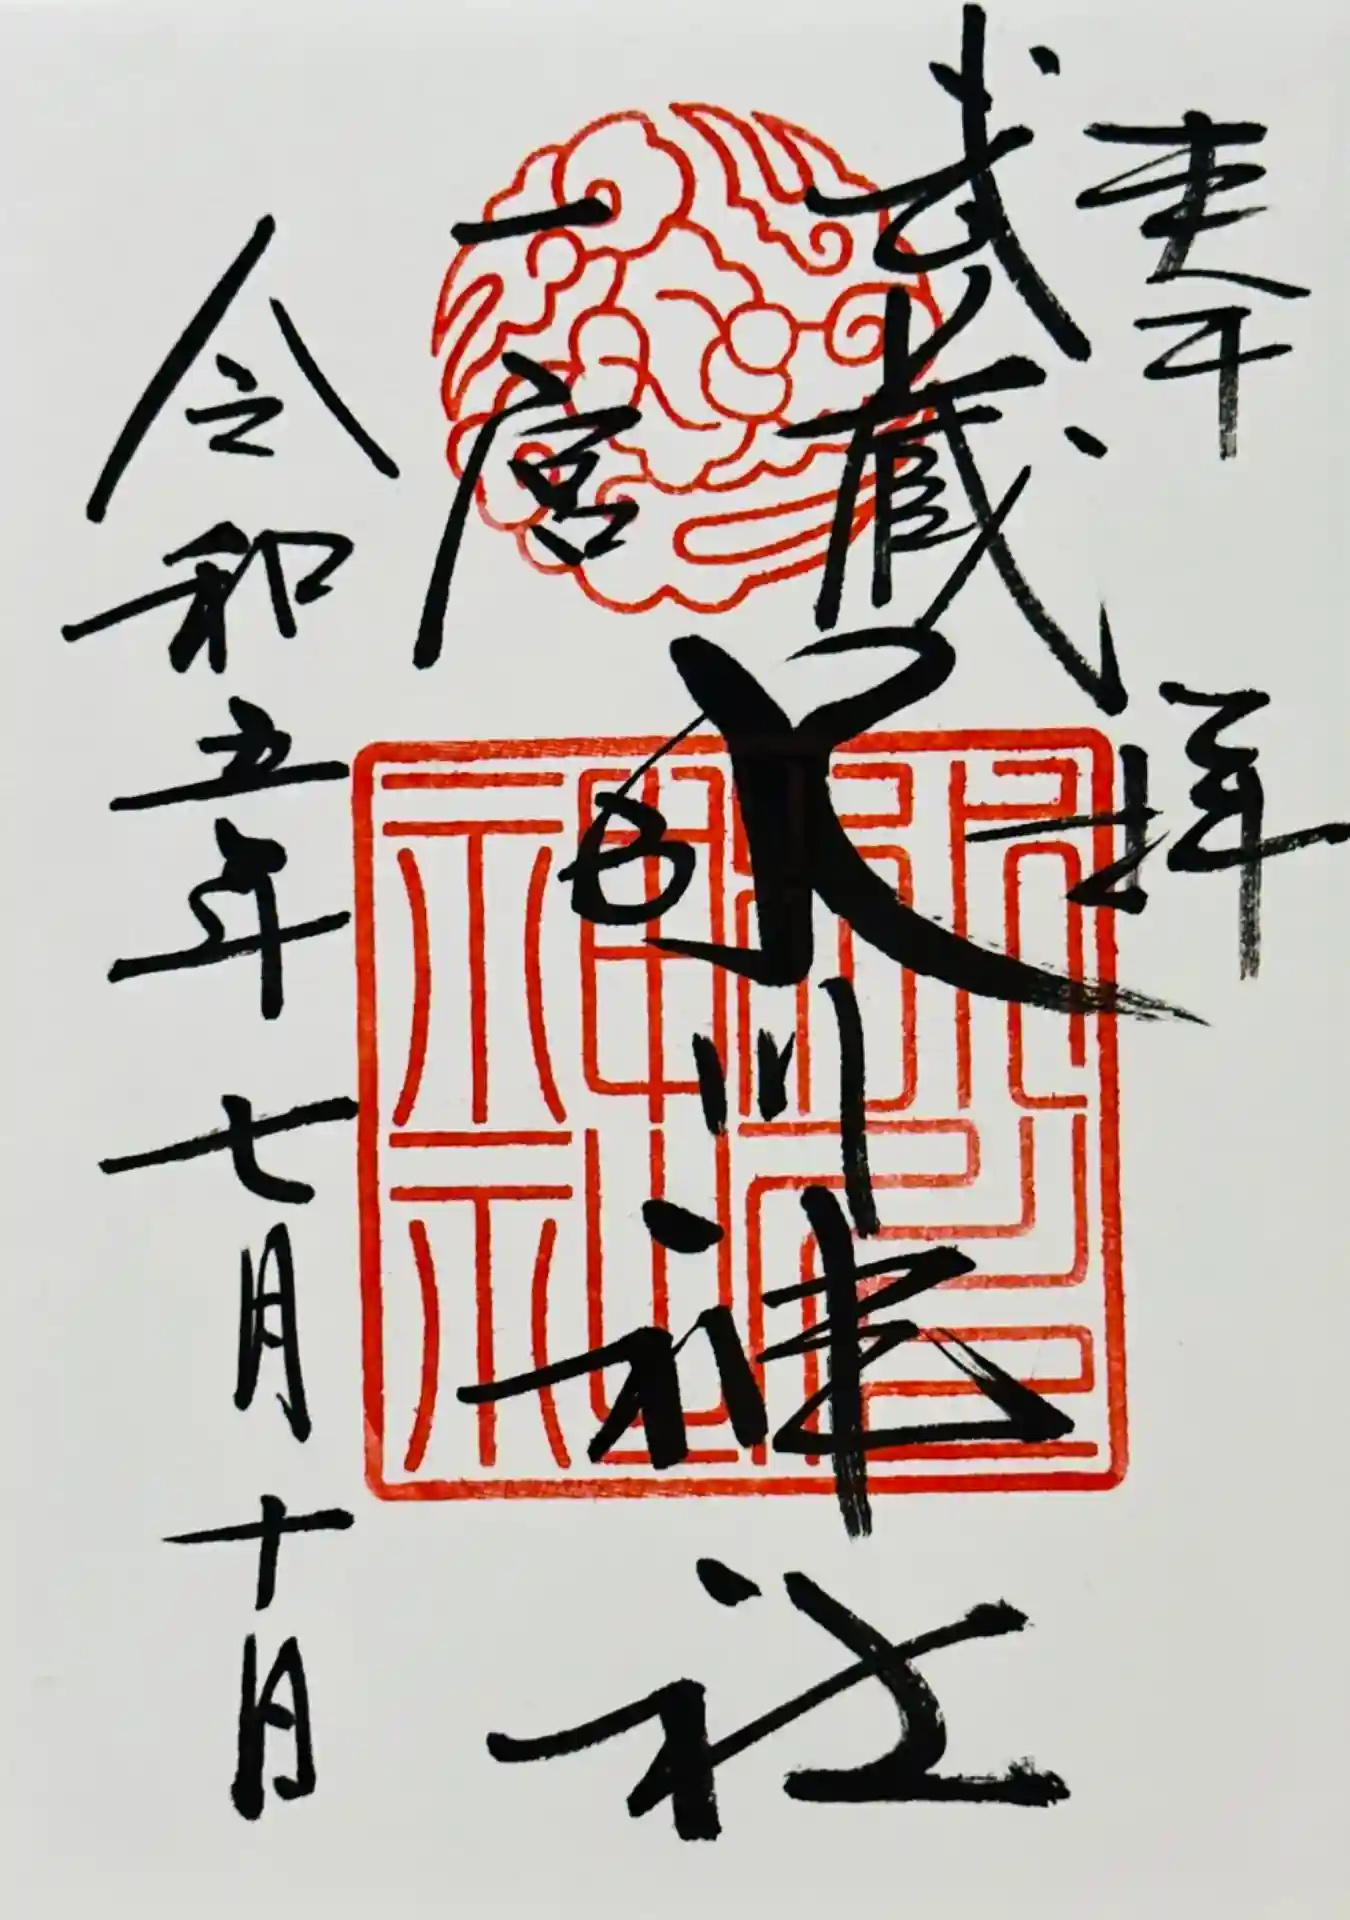 奉拝
武蔵
一宮
氷川神社
令和五年七月十日